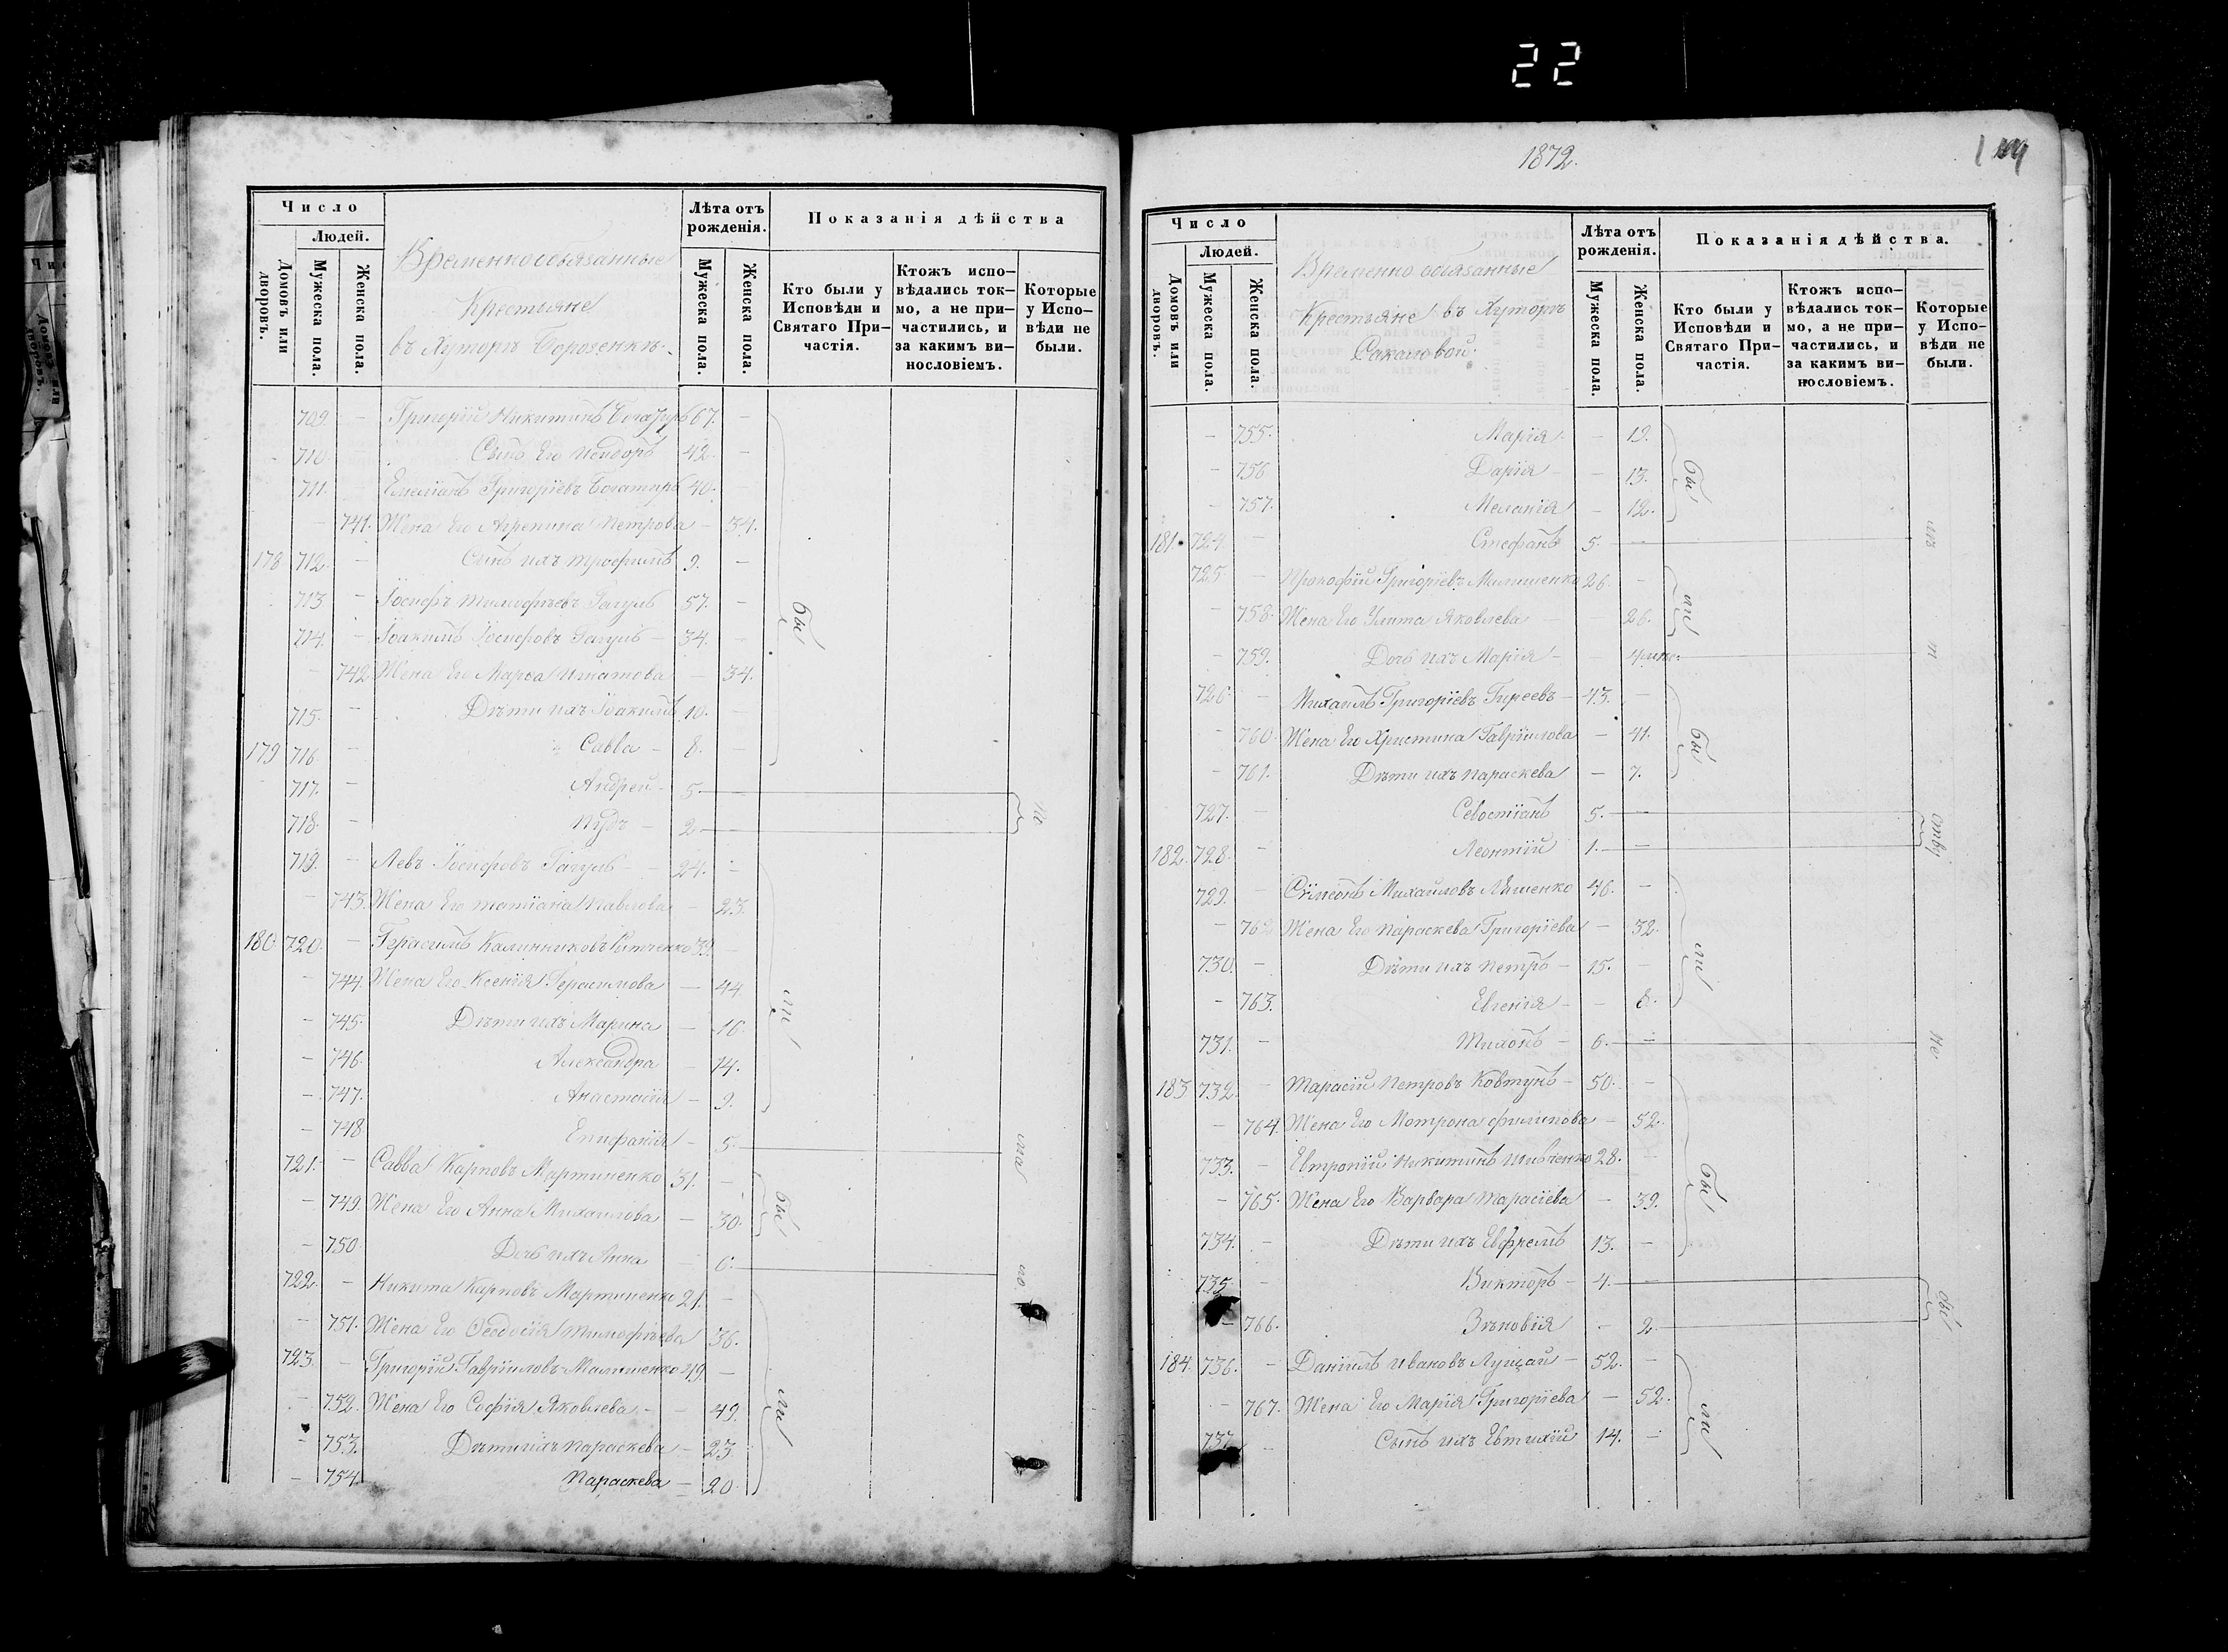 22
Число
Людей.
Домовъ или дворовъ.
Мужеска пола.
Женска пола.
Временнообязанные
Крестьяне
въ Хуторѣ
Лѣта отъ рожденія.
Мужеска пола.
Женска пола.
Показанія дѣйства
Кто были у Исповѣди и Святаго Причастія.
Ктожъ исповѣдались токмо, а не причастились, и за какимъ винословіемъ.
Которые у Исповѣди не были.
709. — Григорій Никитинъ 67. —
710. Сынъ Его 42. —
711. Емеліанъ Григоріевъ Богатирь 40.
— 741. Жена Его Агрепина Петрова — 34.
178 712. — Сынъ ихъ Трофимъ 9. —
713 — Іосифъ Тимофѣевъ Гагуль 57. —
714. — Іоакимъ Іосифовъ Гагуль — 34. —
— 742 Жена Его Марѳа Игнатова — 34.
715. — Дѣти ихъ Іоакимъ 10. —
179 716. — Савва — 8. —
717. — Андрей — 5. —
718. — 2. —
719. — Левъ Іосифовъ Гагуль — 24. —
— 743. Жена Его Татіана Павлова — 23.
180 720. — Герасимъ Калинниковъ 39.
— 744. Жена Его Ксенія Герасимова — 44
— 745. Дѣти ихъ Марина — 16.
— 746. Александра — 14.
— 747. Анастасія — 9.
— 748 Епифанія — 5.
721. — Савва Карповъ Мартиненко 31. —
— 749. Жена Его Анна Михаилова — 30.
— 750 Дочь ихъ Анна — 6.
722. — Никита Карповъ Мартиненко 21. —
— 751. Жена Его Ѳеодосія Тимофѣева 36.
723. — Григорій Гавріиловъ Малишенко 49. —
— 752. Жена Его Софія Яковлева — — 49.
— 753. Дѣти ихъ Параскева — 23
— 754 Параскева — 20
бы
ли
бы
ли
не
1872.
Число
Людей.
Домовъ или дворовъ.
Мужеска пола.
Женска пола.
Временно обязанные
Крестьяне въ Хуторѣ
Сакаловой.
Лѣта отъ рожденія.
Мужеска пола.
Женска пола.
Показанія дѣйства.
Кто были у Исповѣди и Святаго Причастія.
Ктожъ исповѣдались токмо, а не причастились, и за какимъ винословіемъ.
Которые у Исповѣди не были.
— 755. Марія — 19.
— 756 Дарія — — 13.
— 757. Меланія — 12.
181. 724. — Стефанъ 5. —
725. — Прокофій Григоріевъ Малишенко 26. —
— 758. Жена Его Улита Яковлева — — 26.
— 759. Дочь ихъ Марія — —
726. — Михаилъ Григоріевъ Гиреевъ — 43. —
— 760. Жена Его Христина Гавріилова — 41.
— 761. Дѣти ихъ Параскева — 7.
727. — Севостіанъ 5. —
182. 728. — Леонтій 1. —
729. — Сѵмеонъ Михайловъ Ляшенко 46. —
— 762 Жена Его Параскева Григоріева — 32.
730. — Дѣти ихъ Петръ — 15. —
— 763. Евгенія — — 8.
731. — Тихонъ — 6. —
183 732. — Тарасій Петровъ Ковтунъ — 50. —
— 764. Жена Его Мотрона Филипова — 52.
733. — Евтропій Никитинъ Шевченко 28. —
— 765. Жена Его Варвара Тарасіева — 39.
734. — Дѣти ихъ Евфремъ 13. —
735. — Викторъ — 4. —
— 766. Зѣновія — 2.
184. 736. — Даніилъ Ивановъ Луцай — 52. —
— 767. Жена Его Марія Григоріева — 52.
737 — Сынъ ихъ Евтихій 14. —
бы
ли
бы
ли
бы
ли
не